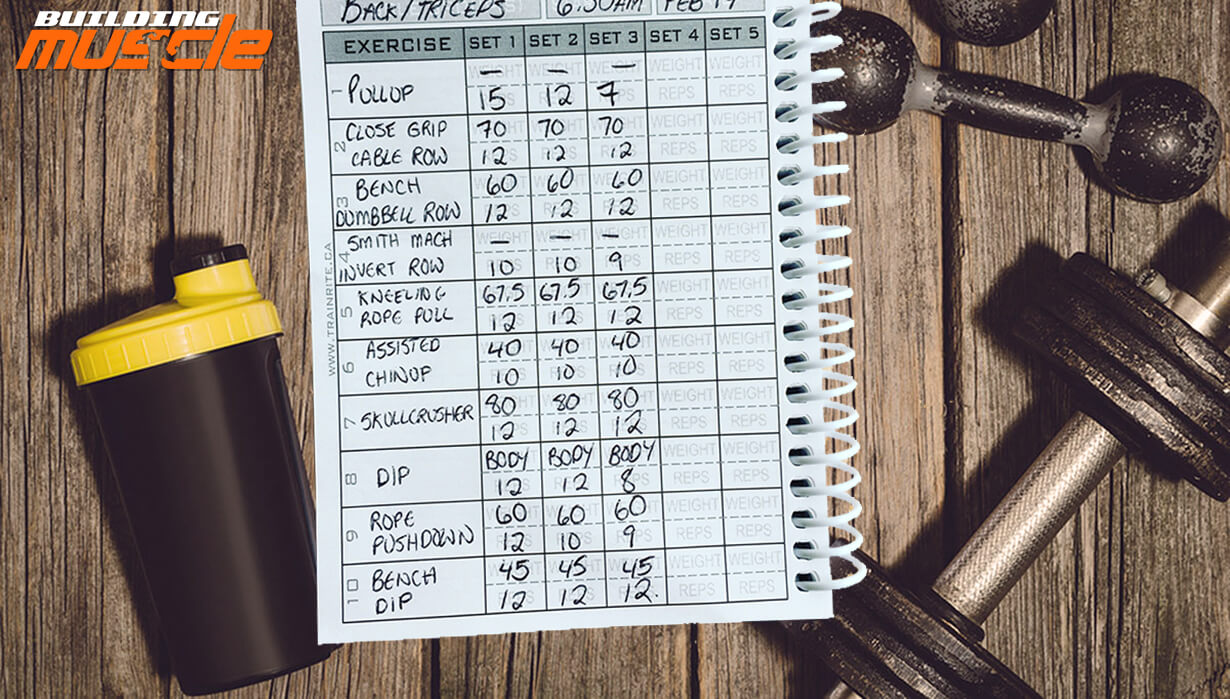 BUILDING
muscle
BACK/TRICEPS 6:30AM FEB 17
EXERCISE SET 1 SET 2 SET 3 SET 4 SET 5
1 PULLUP — — — WEIGHT WEIGHT
15 12 7 REPS REPS
2 CLOSE GRIP 70 70 70 WEIGHT WEIGHT
CABLE ROW 12 12 12 REPS REPS
3 BENCH 60 60 60 WEIGHT WEIGHT
DUMBBELL ROW 12 12 12 REPS REPS
4 SMITH MACH — — — WEIGHT WEIGHT
INVERT ROW 10 10 9 REPS REPS
5 KNEELING 67.5 67.5 67.5 WEIGHT WEIGHT
ROPE PULL 12 12 12 REPS REPS
6 ASSISTED 40 40 40 WEIGHT WEIGHT
CHINUP 10 10 10 REPS REPS
7 SKULLCRUSHER 80 80 80 WEIGHT WEIGHT
12 12 12 REPS REPS
8 DIP BODY BODY BODY WEIGHT WEIGHT
12 12 8 REPS REPS
9 ROPE 60 60 60 WEIGHT WEIGHT
PUSHDOWN 12 10 9 REPS REPS
10 BENCH 45 45 45 WEIGHT WEIGHT
DIP 12 12 12. REPS REPS
WWW.TRAINRITE.CA